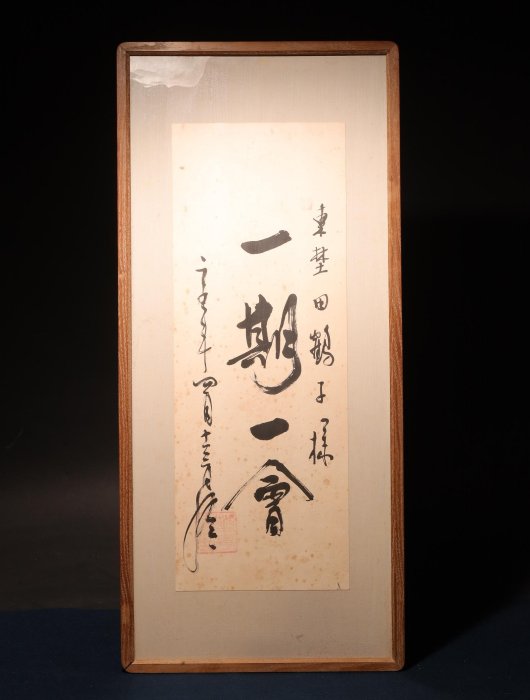 東埜田鶴子様
一期一會
年四月十三日